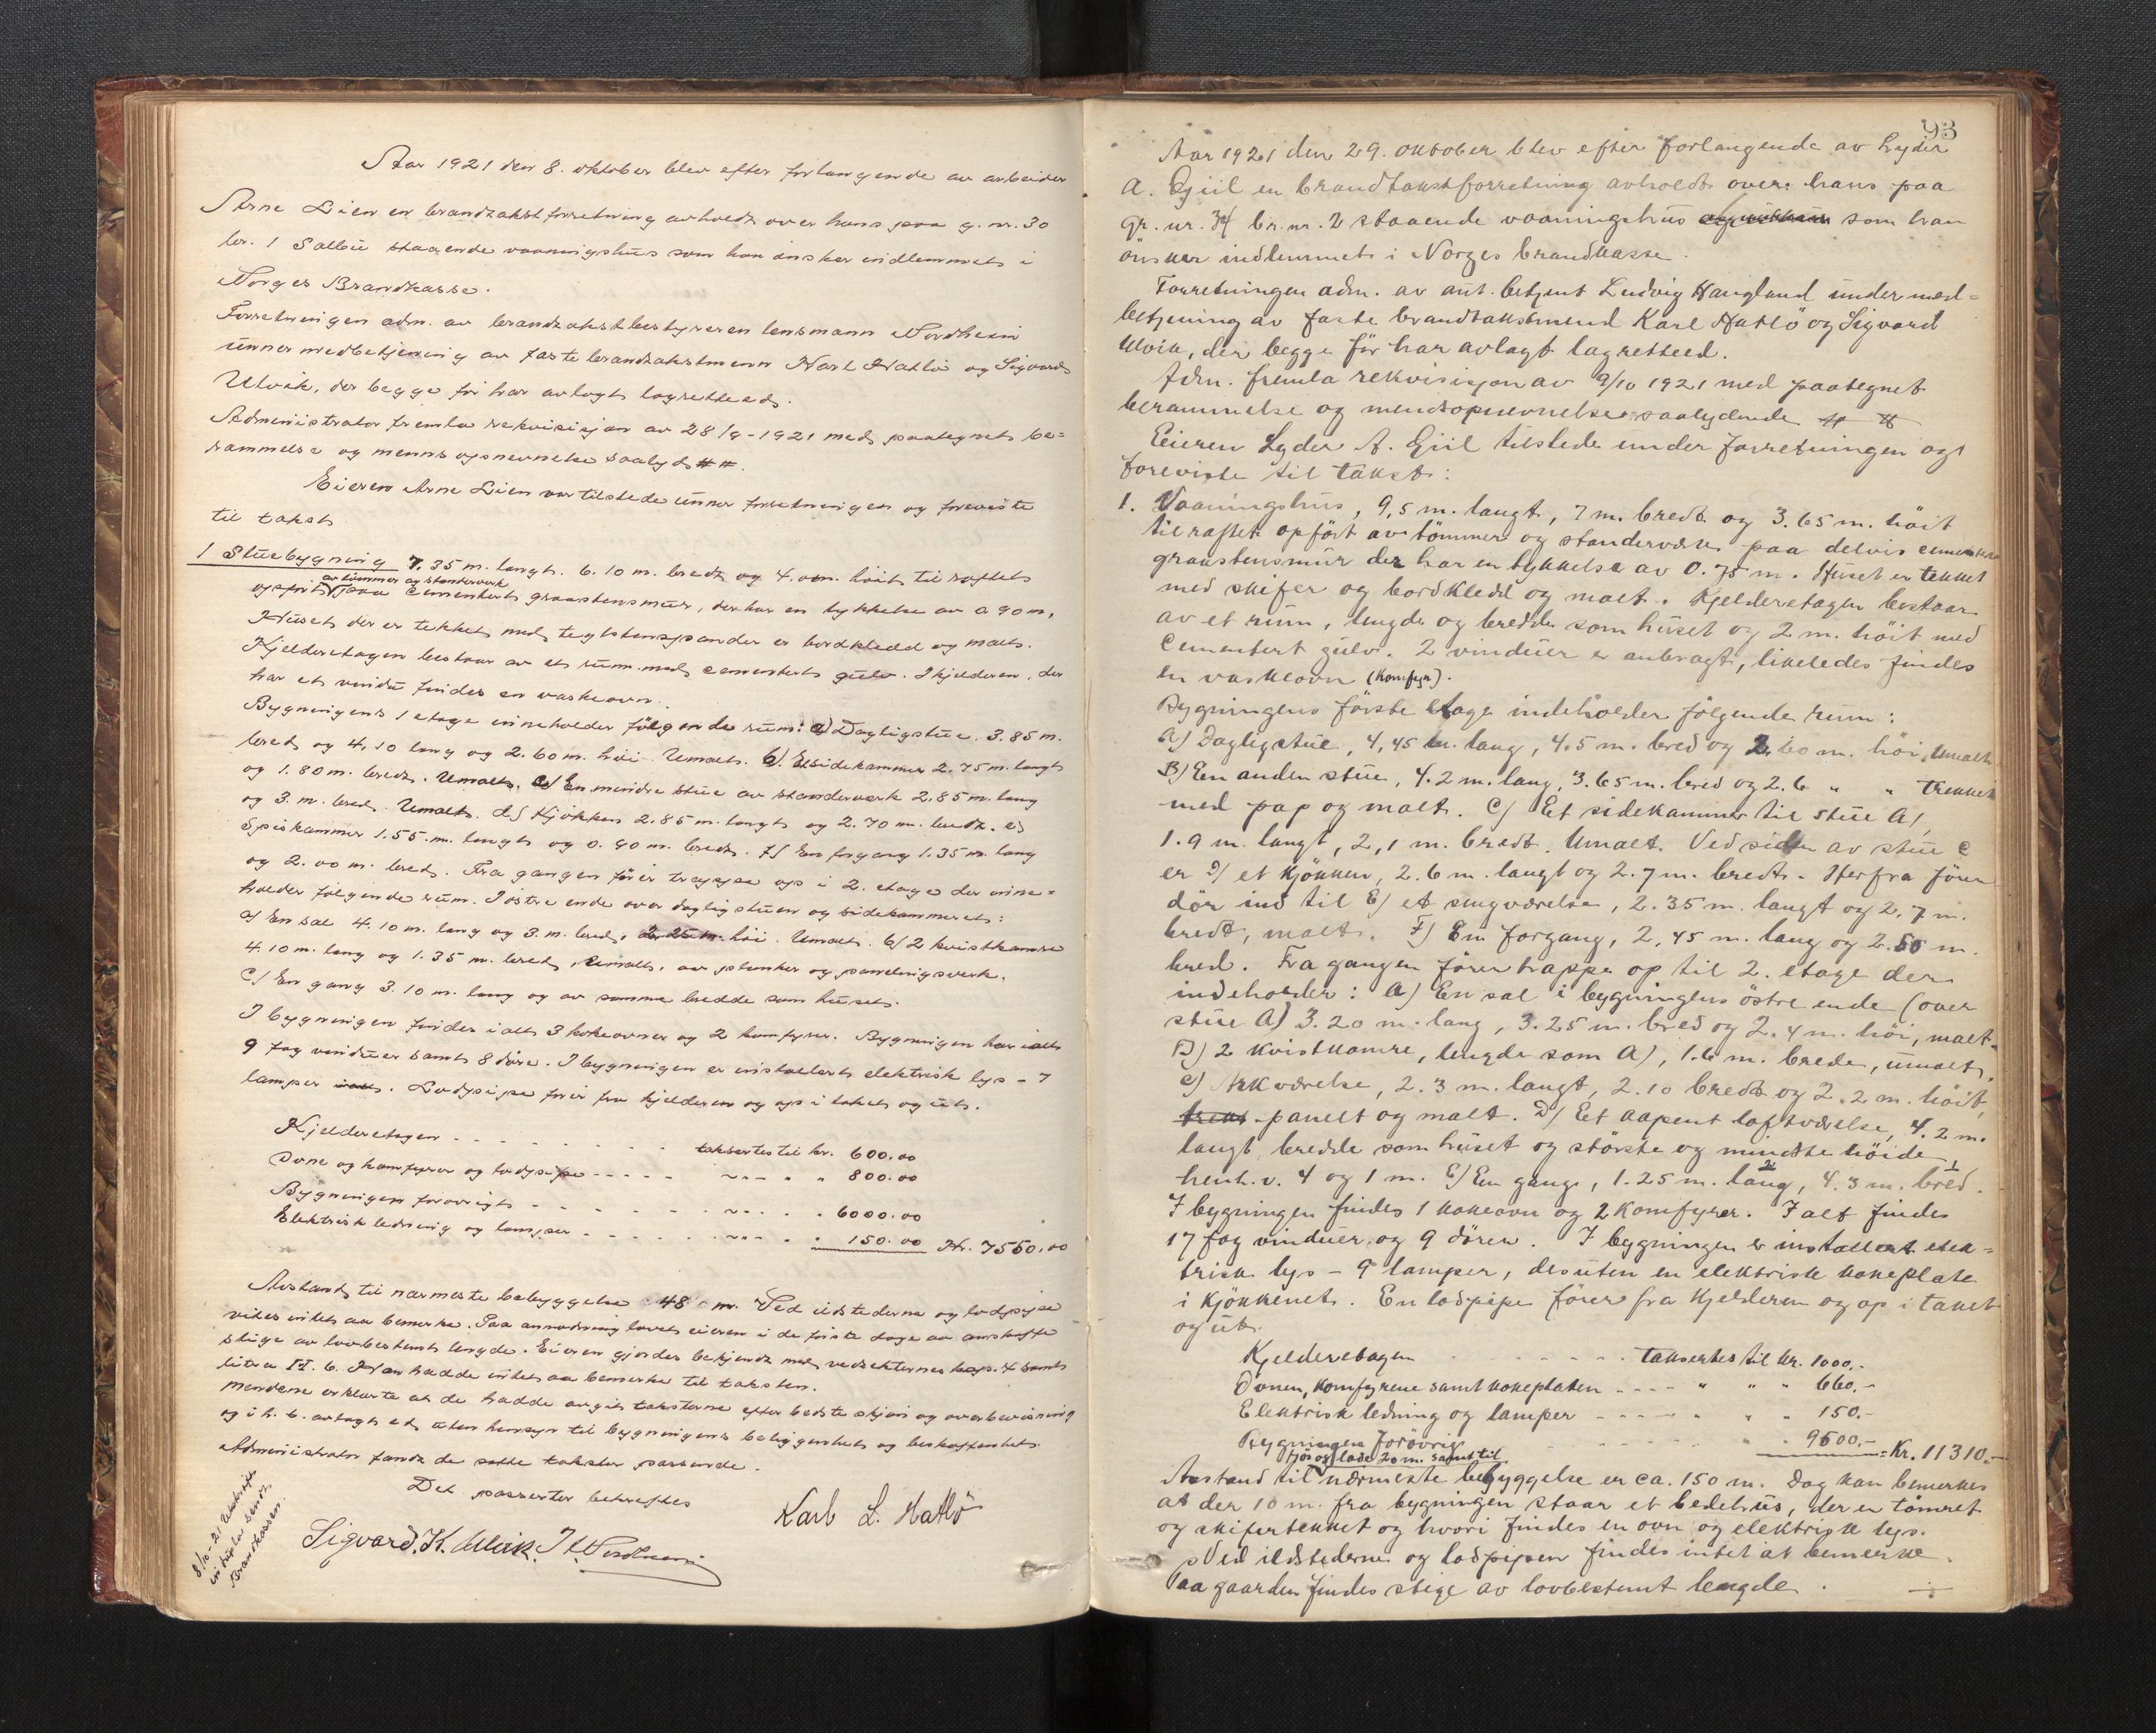 Aar 1921 den 8. oktober blev efter forlangende av arbeider
Arne Lien en brandtakstforretning avholdt over hans paa g. nr. 30
br. 1 Salbu staaende vaaningshus som han ønsker indlemmet i
Norges Brandkasse.
Forretningen adm. av brandtakstbestyreren lensmann Nordheim
unner medbetjening av faste brandtakstmenn Karl Hatlö og Sigvard
Ulvik, der begge för har avlagt lagretteed.
Administrator fremla rekvisisjon av 28/9-1921 med paategnet be=
rammelse og menns opnevnelse saalyd. # #.
Eieren Arne Lien var tilstede unner forretningen og foreviste
til takst
1 Stuebygning 7.35 m. langt. 6.10 m. bredt og 4.00m. höit til raftet
av tömmer og standerverk
opfört paa cementert graastensmur, der har en tykkelse av 0.90 m.
Huset der er tekket med teglstenspander er bordkledd og malt.
Kjelderetagen bestaar av et rum med cementert gulv. I kjelderen, der
har et vindu findes en vaskeovn.
Bygningens 1 etage inneholder fölgende rum: a) Dagligstue. 3.85 m.
bred og 4.10 lang og 2.60 m. höi. Umalt. b). Et sidekammer 2.75 m. langt
og 1.80 m. bredt. Umalt. c) En mindre stue av standerverk 2.85 m. lang
og 3. m. bred. Umalt. d) Kjökken 2.85 m. langt og 2.70 m. bredt. e)
Spiskammer 1.55 m. langt og 0.90 m. bredt. f) En forgang 1.35 m. lang
og 2.00 m. bred. Fra gangen förer trappe op i 2. etage der inne=
holder fölgende rum. I östre ende over dagligstuen og sidekammeret:
a) En sal 4.10 m. lang og 3. m. bred, 2.25 m. höi. Umalt. b) 2 kvistkamre
4.10 m. lang og 1.35 m. bred, Umalt, av planker og panelingsverk.
c) En gang 3.10 m. lang og av samme bredde som huset.
I bygningen findes i alt 3 kokeovner og 2 komfyrer. Bygningen har i alt
9 fag vinduer samt 8 döre. I bygningen er installert elektrisk lys - 7
lamper. Lodpipe förer fra kjelderen og op i taket og ut.
Kjelderetagen - - - - taksertes til kr. 600.00
Ovne og komfyrer og lodpipe - - - - „ „ 800.00
Bygningen forövrigt - - - - „ „ 6000.00
Elektrisk ledning og lamper - - - - „ „ 150.00 Kr. 7550.00
Avstand til nærmeste bebyggelse 48 m. Ved ildstederne og lodpipe
vites intet aa bemerke. Paa anmodning lovet eieren i de förste dage aa anskaffe
stige av lovbestemt lengde. Eieren gjordes bekjendt med vedtekternes kap. 4 samt
litra II. 6. Han hadde intet aa bemerke til taksten.
Mendene erklærte at de hadde avgit taksterne efter bedste skjön og overbevisning
og i h. t. avlagt ed, uten hensyn til bygningens beliggenhet og beskaffenhet.
Administrator fandt de satte takster passende.
Det passerter bekreftes
Karl L. Hatlö
Sigvard. K. Ulvik. Nordheim
8/10-21 Utskrift
in duplo sendt
Brandkassen.
93
Aar 1921 den 29. oktober blev efter forlangende av Lyder
A. Gjiil en brandtakstforretning avholdt over hans paa
gr. nr. 34 br. nr. 2 staaende vaaningshus som han
önsker indlemmet i Norges brandkasse.
Forretningen adm. av aut. betjent Ludvig Haugland under med=
betjening av faste brandtakstmend Karl Hatlö og Sigvard
Ulvik, der begge för har avlagt lagretteed.
Adm. fremla rekvisisjon av 9/10 1921 med paategnet
berammelse og mendsopnevnelse saalydende # #
Eieren Lyder A. Gjiil tilstede under forretningen og
foreviste til takst:
1. Vaaningshus, 9,5 m. langt, 7 m. bredt og 3.65 m. höit
til raftet opfört av tömmer og standerverk paa delvis cementert
graastensmur der har en tykkelse av 0.75 m. Huset er tekket
med skifer og bordkledd og malt. Kjelderetagen bestaar
av et rum, lengde og bredde som huset og 2 m. höit med
cementert gulv. 2 vinduer er anbragt, likeledes findes
en vaskeovn (Komfyr).
Bygningens förste etage indeholder fölgende rum:
A) Dagligstue, 4,45 m. lang, 4.5 m. bred og 2.60 m. höi, umalt
B) En anden stue, 4.2 m. lang, 3.65 m. bred og 2.6 „ „ trekket
med pap og malt. C) Et sidekammer til stue A),
1.9 m. langt, 2,1 m. bredt. Umalt. Ved siden av stue C
er D) et kjökken, 2.6 m. langt og 2.7 m. bredt. Herfra förer
dör ind til E) et smugværelse, 2.35 m. langt og 2.7 m.
bredt, malt. F) En forgang, 2,45 m. lang og 2.50 m.
bred. Fra gangen förer trappe op til 2. etage der
indeholder: A) En sal i bygningens östre ende (over
stue A) 3.20 m. lang, 3.25 m. bred og 2.4 m. höi, malt.
B) 2 kvistkamre, lengde som A), 1.6 m. brede, umalt.
C) Arkværelse, 2.3 m. langt, 2.10 bredt og 2.2 m. höit,
panelt og malt. D) Et aapent loftværelse, 4.2 m.
langt, bredde som huset og störste og mindste höide,
henh.v. 4 og 1 m. E) En gang, 1.25 m. lang, 4.3 m. bred.
I bygningen findes 1 kokeovn og 2 komfyrer. I alt findes
17 fag vinduer og 9 dörer. I bygningen er installert elek=
trisk lys - 9 lamper, desuten en elektrisk kokeplate
i kjökkenet. En lodpipe förer fra kjelderen og op i taket
og ut.
Kjelderetagen - - - - taksertes til kr. 1000.-
Ovnen, komfyrene samt kokeplaten - - - - „ „ „ 660.-
Elektrisk ledning og lamper - - - - „ „ „ 150.-
Bygningen forövrig - - - - „ 9500.- = Kr. 11310.-
fjös og lade 20 m. samt til
Avstand til nærmeste bebyggelse er ca. 150 m. Dog kan bemerkes
at der 10 m. fra bygningen staar et bedehus, der er tömret
og skifertekket og hvori findes en ovn og elektrisk lys.
Ved ildstederne og lodpipen findes intet at bemerke.
Paa gaarden findes stige av lovbestemt lengde.